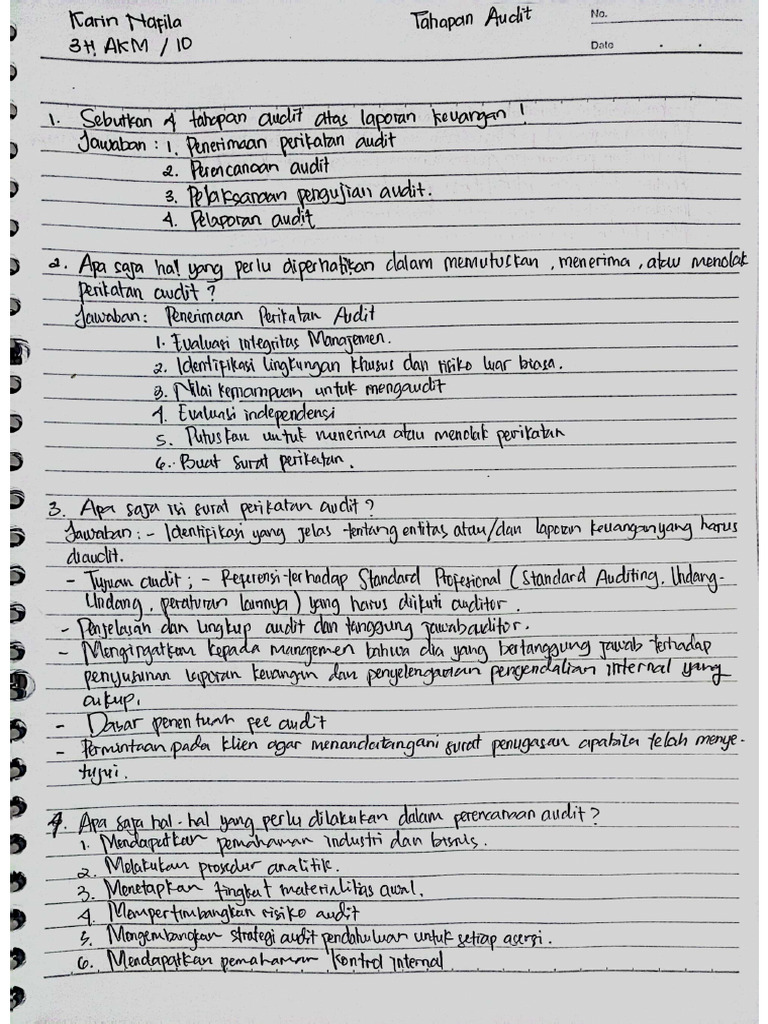 Karin Nafila
3H AKM / 10
Tahapan Audit
No.
Date
1. Sebutkan 4 tahapan audit atas laporan keuangan !
Jawaban : 1. Penerimaan perikatan audit
2. Perencanaan audit
3. Pelaksanaan pengujian audit.
4. Pelaporan audit
2. Apa saja hal yang perlu diperhatikan dalam memutuskan , menerima , atau menolak
perikatan audit ?
Jawaban : Penerimaan Perikatan Audit
1. Evaluasi integritas Manajemen.
2. Identifikasi lingkungan khusus dan risiko luar biasa.
3. Nilai kemampuan untuk mengaudit
4. Evaluasi independensi
5. Putuskan untuk menerima atau menolak perikatan
6. Buat surat perikatan.
3. Apa saja isi surat perikatan audit ?
Jawaban : - Identifikasi yang jelas tentang entitas atau/dan laporan keuangan yang harus
diaudit.
- Tujuan audit ; - Referensi terhadap Standard Profesional ( Standard Auditing, Undang-
Undang, peraturan lainnya ) yang harus diikuti auditor .
- Penjelasan dan lingkup audit dan tanggung jawab auditor.
- Mengingatkan kepada manajemen bahwa dia yang bertanggung jawab terhadap
penyusunan laporan keuangan dan penyelengaraan pengendalian internal yang
cukup.
- Dasar penentuan fee audit
- Permintaan pada klien agar menandatangani surat penugasan apabila telah menye-
tujui.
4. Apa saja hal-hal yang perlu dilakukan dalam perencanaan audit ?
1. Mendapatkan pemahaman industri dan bisnis.
2. Melakukan prosedur analitik.
3. Menetapkan tingkat materialitas awal.
4. Mempertimbangkan risiko audit
5. Mengembangkan strategi audit pendahuluan untuk setiap asersi.
6. Mendapatkan pemahaman kontrol internal